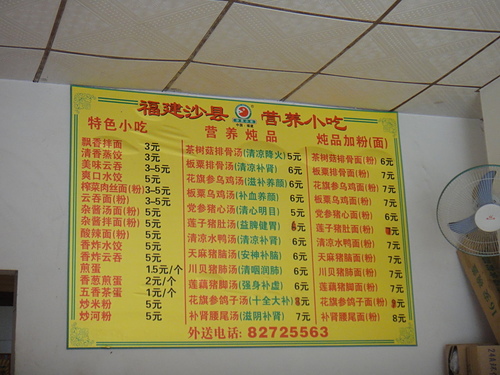 福建沙县 营养小吃
特色小吃
飘香拌面 3元
清香蒸饺 3元
美味云吞 3-5元
爽口水饺 5元
榨菜肉丝面(粉) 3-5元
云吞面(粉) 3-5元
杂酱汤面(粉) 5元
杂酱拌面(粉) 5元
酸辣面(粉) 5元
香炸水饺 5元
香炸云吞 5元
煎蛋 1.5元/个
香葱煎蛋 2元/个
五香茶蛋 1元/个
炒米粉 5元
炒河粉 5元
营养炖品
茶树菇排骨汤(清凉降火) 5元
板栗排骨汤(清凉补肾) 6元
花旗参乌鸡汤(滋补养颜) 6元
板栗乌鸡汤(补血养颜) 6元
党参猪心汤(清心明目) 5元
莲子猪肚汤(益脾健胃) 元
清凉水鸭汤(清凉补肾) 6元
天麻猪脑汤(安神补脑) 6元
川贝猪肺汤(清咽润肺) 6元
莲藕猪脚汤(强身补虚) 6元
花旗参鸽子汤(十全大补) 8元
补肾腰尾汤(滋阴补肾) 7元
炖品加粉(面)
茶树菇排骨面(粉) 6元
板栗排骨面(粉) 7元
花旗参乌鸡面(粉) 7元
板栗乌鸡面(粉) 7元
党参猪心面(粉) 6元
莲子猪肚面(粉) 元
清凉水鸭面(粉) 7元
天麻猪脑面(粉) 7元
川贝猪肺面(粉) 7元
莲藕猪脚面(粉) 7元
花旗参鸽子面(粉) 元
补肾腰尾面(粉) 8元
外送电话: 82725563